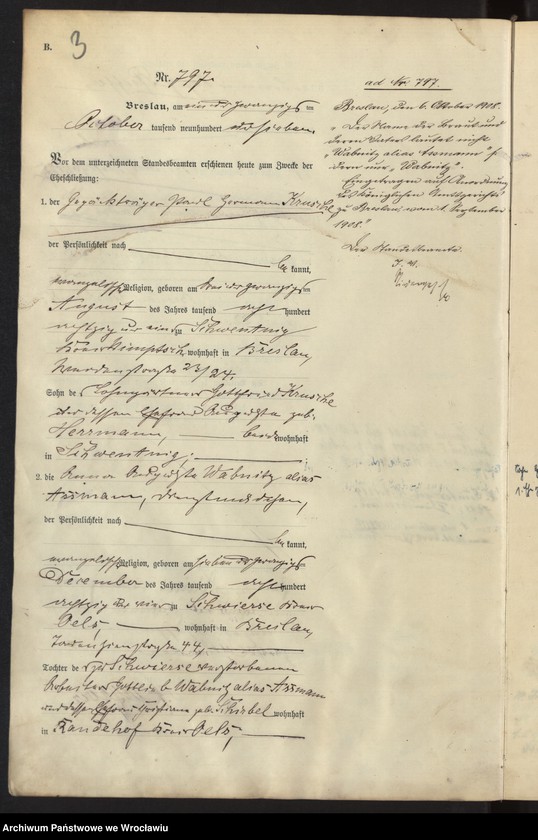 B.
3
Nr. 797.
Breslau, am ein und zwanzigsten
October tausend neunhundert und sieben
Vor dem unterzeichneten Standesbeamten erschienen heute zum Zwecke der
Eheschließung:
1. der Gepäckträger Paul Hermann Krusche
der Persönlichkeit nach
be kannt,
evangelischer Religion, geboren am zwei und zwanzigsten
August des Jahres tausend acht hundert
achtzig und ein zu Schwentnig
Kreis Nimptsch, wohnhaft in Breslau,
23/24.
Sohn des Lohngärtners Gottfried Krusche
und dessen Ehefrau Auguste geb.
Herrmann, beide wohnhaft
in Schwentnig.
2. die Anna Auguste Wabnitz alias
Assmann, Dienstmädchen,
der Persönlichkeit nach
be kannt,
evangelischer Religion, geboren am sieben und zwanzigsten
December des Jahres tausend acht hundert
achtzig und vier zu Schwierse Kreis
Oels, wohnhaft in Breslau,
Tauentzienstraße 44,
Tochter des zu Schwierse verstorbenen
Arbeiters Gottlieb Wabnitz alias Assmann
und dessen Ehefrau Christiane geb. Schirbel wohnhaft
in Kreis Oels,
ad Nr. 797.
Breslau, den 6. Oktober 1908.
Der Name der Braut und
deren Vaters lautet nicht
"Wabnitz alias Assmann" son
dern nur "Wabnitz".
Eingetragen auf Anordnung
des Königlichen Amtsgerichts
zu Breslau, vom 1. September
1908.
Der Standesbeamte
I. V.
Archiwum Państwowe we Wrocławiu